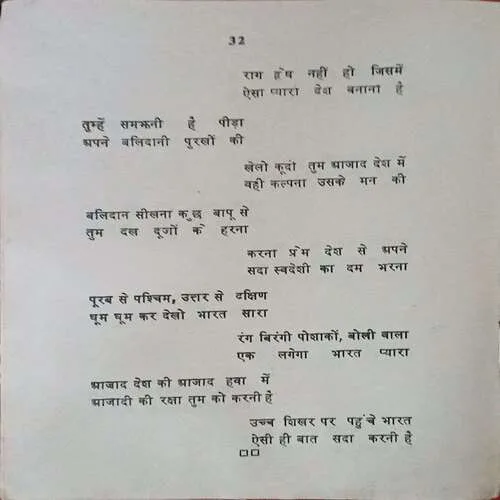 32
राग द्वेष नहीं हो जिसमें
ऐसा प्यारा देश बनाना है
तुम्हें समझनी है पीड़ा
अपने बलिदानी पुरखों की
खेलो कूदो तुम आजाद देश में
वही कल्पना उसके मन की
बलिदान सीखना कुछ बापू से
तुम दख दूजों के हरना
करना प्रेम देश से अपने
सदा स्वदेशी का दम भरना
पूरब से पश्चिम, उत्तर से दक्षिण
घूम घूम कर देखो भारत सारा
रंग बिरंगी पोशाकों, बोली वाला
एक लगेगा भारत प्यारा
आजाद देश की आजाद हवा में
आजादी की रक्षा तुम को करनी है
उच्च शिखर पर पहुंचे भारत
ऐसी ही बात सदा करनी है